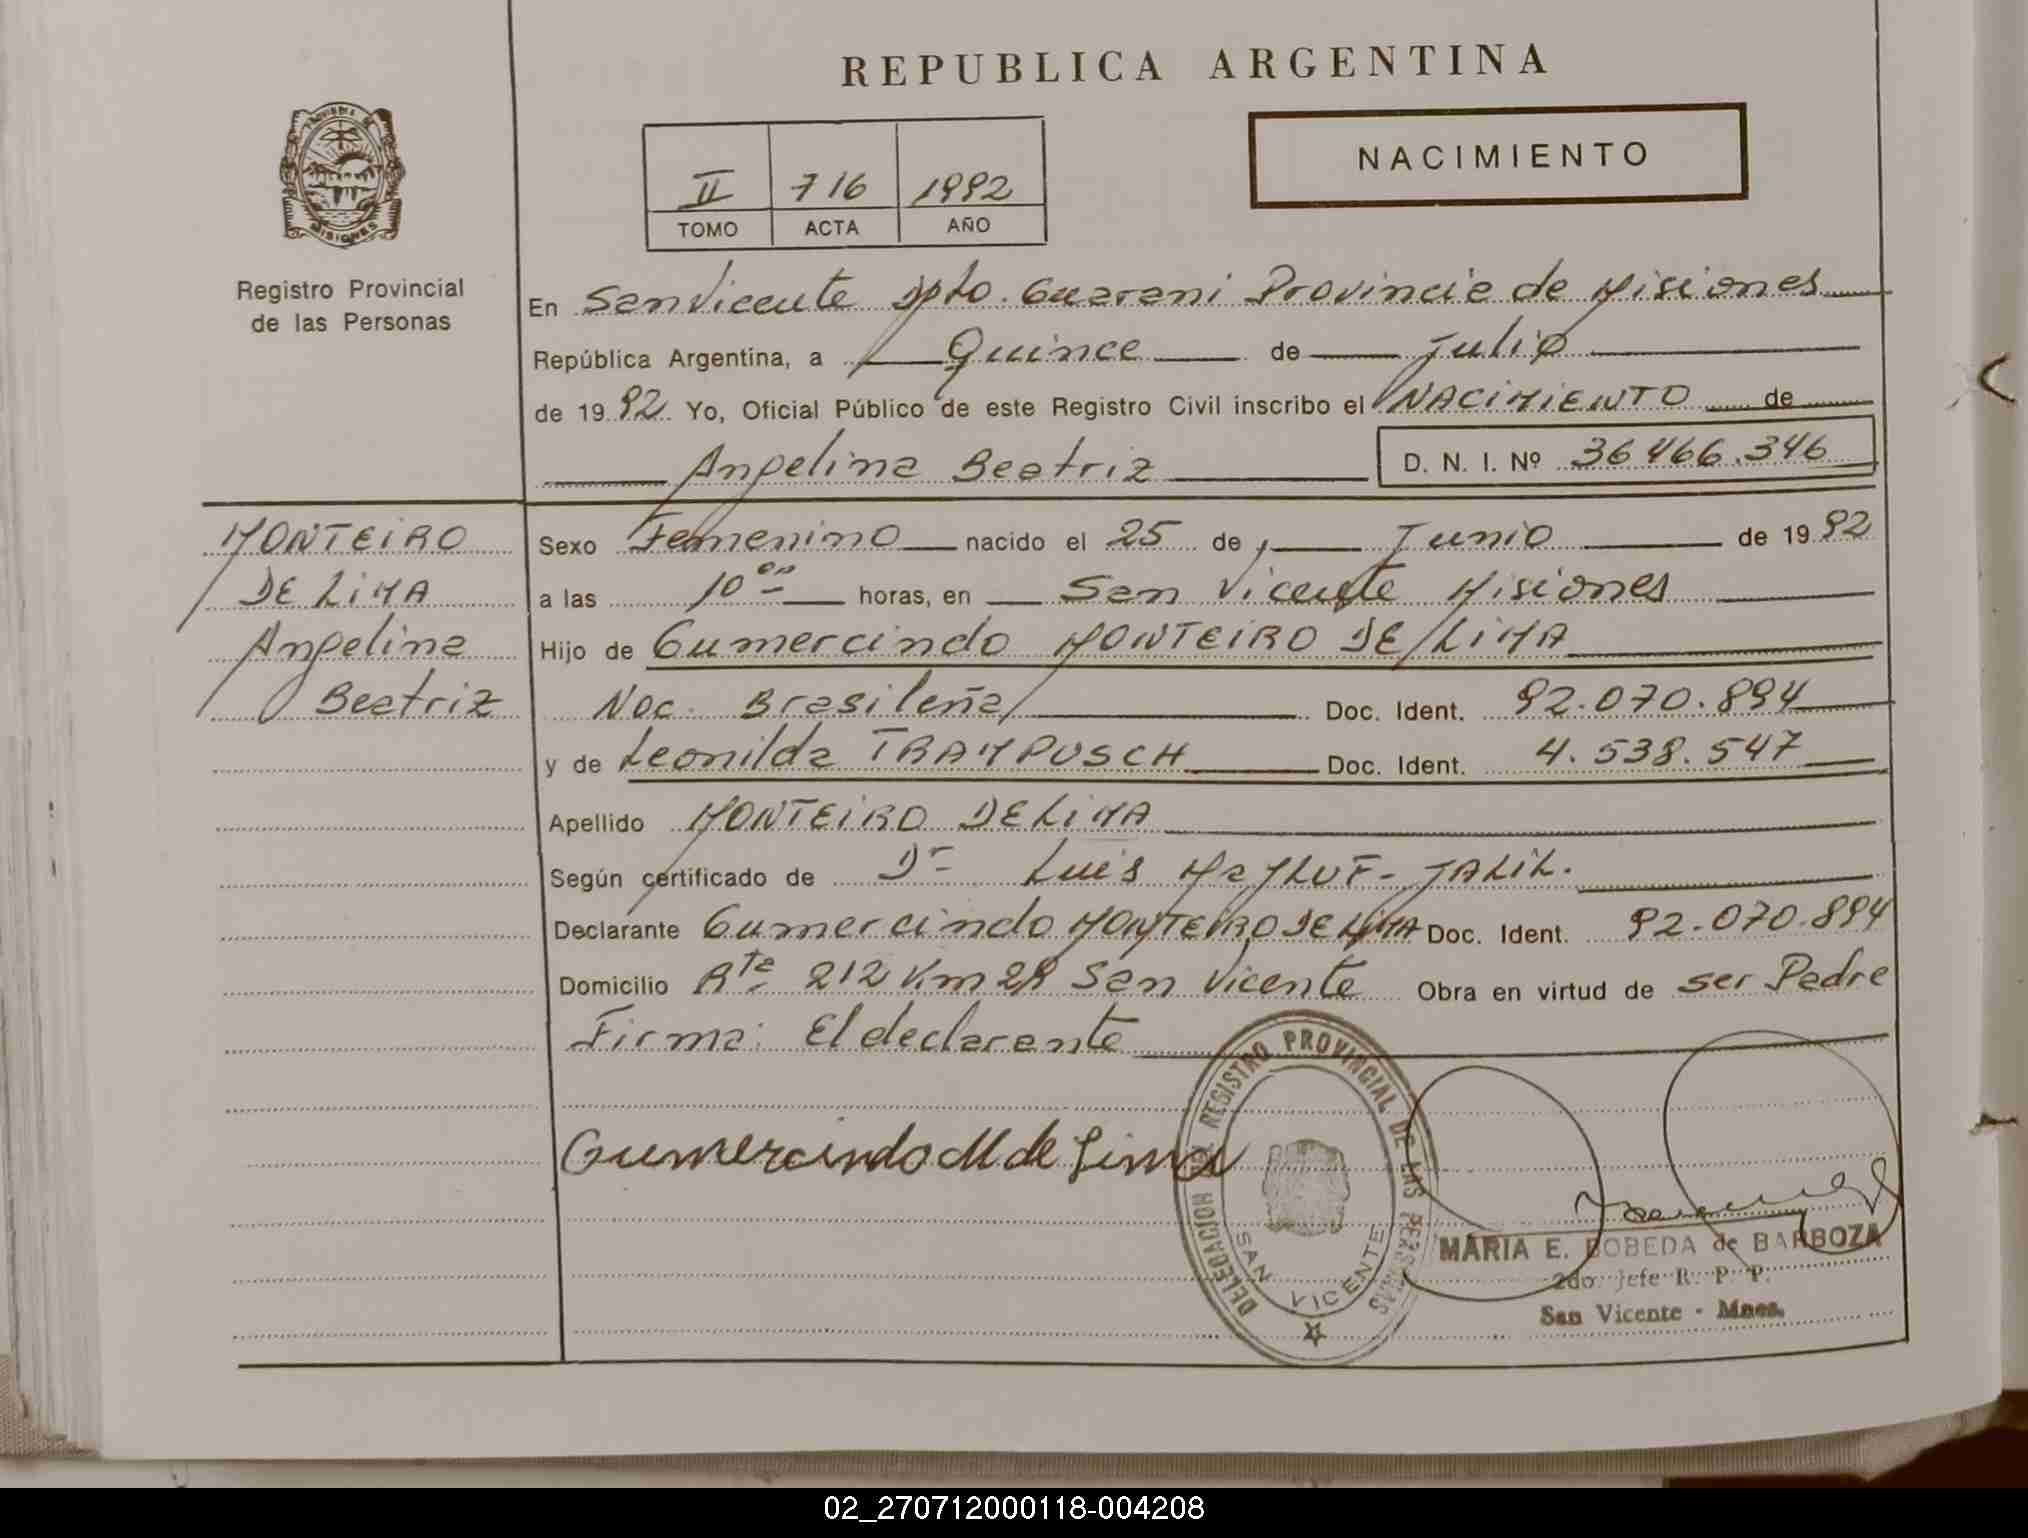 REPUBLICA ARGENTINA
PROVINCIA DE
MISIONES
Registro Provincial
de las Personas
NACIMIENTO
II 716 1992
TOMO ACTA AÑO
En San Vicente Dpto. Guarani Provincia de Misiones
República Argentina, a Quince de Julio
de 1992 Yo, Oficial Público de este Registro Civil inscribo el NACIMIENTO de
Angelina Beatriz D. N. I. Nº 36466.346
MONTEIRO
DE LIMA
Angelina
Beatriz
Sexo Femenino nacido el 25 de Junio de 1992
a las 10 horas, en San Vicente Misiones
Hijo de Gumercindo MONTEIRO DE LIMA
Nac. Brasileña Doc. Ident. 92.070.894
y de Leonilda TRAMPUSCH Doc. Ident. 4.538.547
Apellido MONTEIRO DE LIMA
Según certificado de Dr Luis JALIL.
Declarante Gumercindo MONTEIRO DE LIMA Doc. Ident. 92.070.894
Domicilio Rta 212 Km San Vicente Obra en virtud de ser Padre
Firma: El declarante
Gumercindo M de Lima
DELEGACION DEL REGISTRO PROVINCIAL DE LAS PERSONAS
SAN VICENTE
MARIA E. BOBEDA de BARBOZA
2do. Jefe R. P. P.
San Vicente - Mnes.
02_270712000118-004208